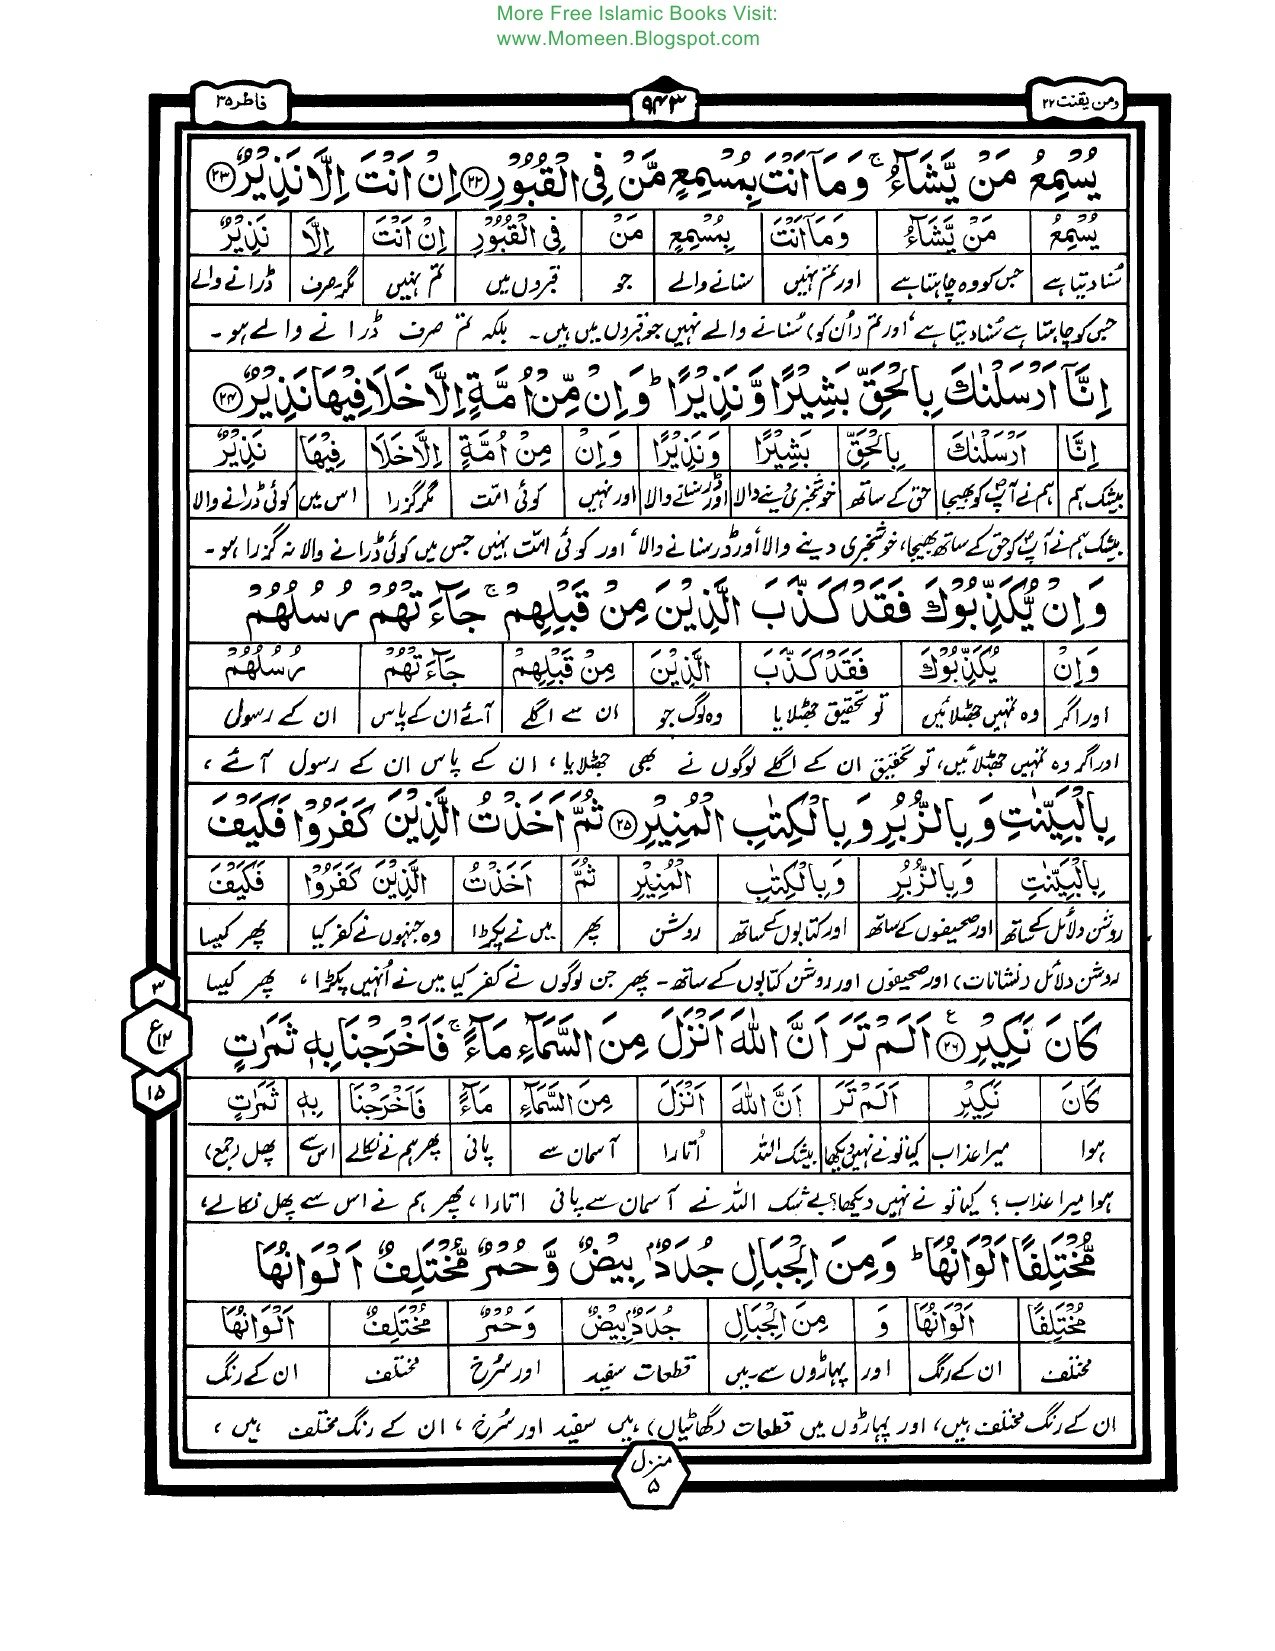 More Free Islamic Books Visit:
www.Momeen.Blogspot.com
ومن یقنت ۲۲ ۹۴۳ فاطر ۳۵
یُسْمِعُ مَنْ یَّشَآءُ ۚ وَمَاۤ اَنْتَ بِمُسْمِعٍ مَّنْ فِی الْقُبُوْرِ ۲۲ اِنْ اَنْتَ اِلَّا نَذِیْرٌ ۲۳
یُسْمِعُ مَنْ یَّشَآءُ وَمَاۤ اَنْتَ بِمُسْمِعٍ مَنْ فِی الْقُبُوْرِ اِنْ اَنْتَ اِلَّا نَذِیْرٌ
سُنا دیتا ہے جس کو وہ چاہتا ہے اور تم نہیں سنانے والے جو قبروں میں تم نہیں مگر صرف ڈرانے والے
جس کو چاہتا ہے سُنا دیتا ہے، اور تم (اُن کو) سُنانے والے نہیں جو قبروں میں ہیں۔ بلکہ تم صرف ڈرانے والے ہو۔
اِنَّاۤ اَرْسَلْنٰكَ بِالْحَقِّ بَشِیْرًا وَّنَذِیْرًا ؕ وَاِنْ مِّنْ اُمَّةٍ اِلَّا خَلَا فِیْهَا نَذِیْرٌ ۲۴
اِنَّا اَرْسَلْنٰكَ بِالْحَقِّ بَشِیْرًا وَنَذِیْرًا وَاِنْ مِنْ اُمَّةٍ اِلَّا خَلَا فِیْهَا نَذِیْرٌ
بیشک ہم ہم نے آپؐ کو بھیجا حق کے ساتھ خوشخبری دینے والا اور ڈر سنانے والا اور نہیں کوئی امّت مگر گزرا اس میں کوئی ڈرانے والا
بیشک ہم نے آپؐ کو حق کے ساتھ بھیجا، خوشخبری دینے والا اور ڈر سنانے والا، اور کوئی امّت نہیں جس میں کوئی ڈرانے والا نہ گزرا ہو۔
وَاِنْ یُّكَذِّبُوْكَ فَقَدْ كَذَّبَ الَّذِیْنَ مِنْ قَبْلِهِمْ ۚ جَآءَتْهُمْ رُسُلُهُمْ
وَاِنْ یُكَذِّبُوْكَ فَقَدْ كَذَّبَ الَّذِیْنَ مِنْ قَبْلِهِمْ جَآءَتْهُمْ رُسُلُهُمْ
اور اگر وہ تمہیں جھٹلائیں تو تحقیق جھٹلایا وہ لوگ جو ان سے اگلے آئے ان کے پاس ان کے رسول
اور اگر وہ تمہیں جھٹلائیں، تو تحقیق ان کے اگلے لوگوں نے بھی جھٹلایا، ان کے پاس ان کے رسول آئے،
بِالْبَیِّنٰتِ وَبِالزُّبُرِ وَبِالْكِتٰبِ الْمُنِیْرِ ۲۵ ثُمَّ اَخَذْتُ الَّذِیْنَ كَفَرُوْا فَكَیْفَ
بِالْبَیِّنٰتِ وَبِالزُّبُرِ وَبِالْكِتٰبِ الْمُنِیْرِ ثُمَّ اَخَذْتُ الَّذِیْنَ كَفَرُوْا فَكَیْفَ
روشن دلائل کے ساتھ اور صحیفوں کے ساتھ اور کتابوں کے ساتھ روشن پھر میں نے پکڑا وہ جنہوں نے کفر کیا پھر کیسا
روشن دلائل (نشانات) اور صحیفوں اور روشن کتابوں کے ساتھ۔ پھر جن لوگوں نے کفر کیا میں نے اُنہیں پکڑا، پھر کیسا
كَانَ نَكِیْرِ ۲۶ ع اَلَمْ تَرَ اَنَّ اللّٰهَ اَنْزَلَ مِنَ السَّمَآءِ مَآءً ۚ فَاَخْرَجْنَا بِهٖ ثَمَرٰتٍ
۳
ع ۱۳
۱۵
كَانَ نَكِیْرِ اَلَمْ تَرَ اَنَّ اللّٰهَ اَنْزَلَ مِنَ السَّمَآءِ مَآءً فَاَخْرَجْنَا بِهٖ ثَمَرٰتٍ
ہوا میرا عذاب کیا تو نے نہیں دیکھا بیشک اللہ اُتارا آسمان سے پانی پھر ہم نے نکالے اس سے پھل (جمع)
ہوا میرا عذاب؟ کیا تو نے نہیں دیکھا؟ بے شک اللہ نے آسمان سے پانی اتارا، پھر ہم نے اس سے پھل نکالے،
مُّخْتَلِفًا اَلْوَانُهَا ؕ وَمِنَ الْجِبَالِ جُدَدٌۢ بِیْضٌ وَّحُمْرٌ مُّخْتَلِفٌ اَلْوَانُهَا
مُخْتَلِفًا اَلْوَانُهَا وَ مِنَ الْجِبَالِ جُدَدٌۢ بِیْضٌ وَحُمْرٌ مُخْتَلِفٌ اَلْوَانُهَا
مختلف ان کے رنگ اور پہاڑوں سے۔ میں قطعات سفید اور سُرخ مختلف ان کے رنگ
ان کے رنگ مختلف ہیں، اور پہاڑوں میں قطعات (گھاٹیاں) ہیں سفید اور سُرخ، ان کے رنگ مختلف ہیں،
منزل ۵